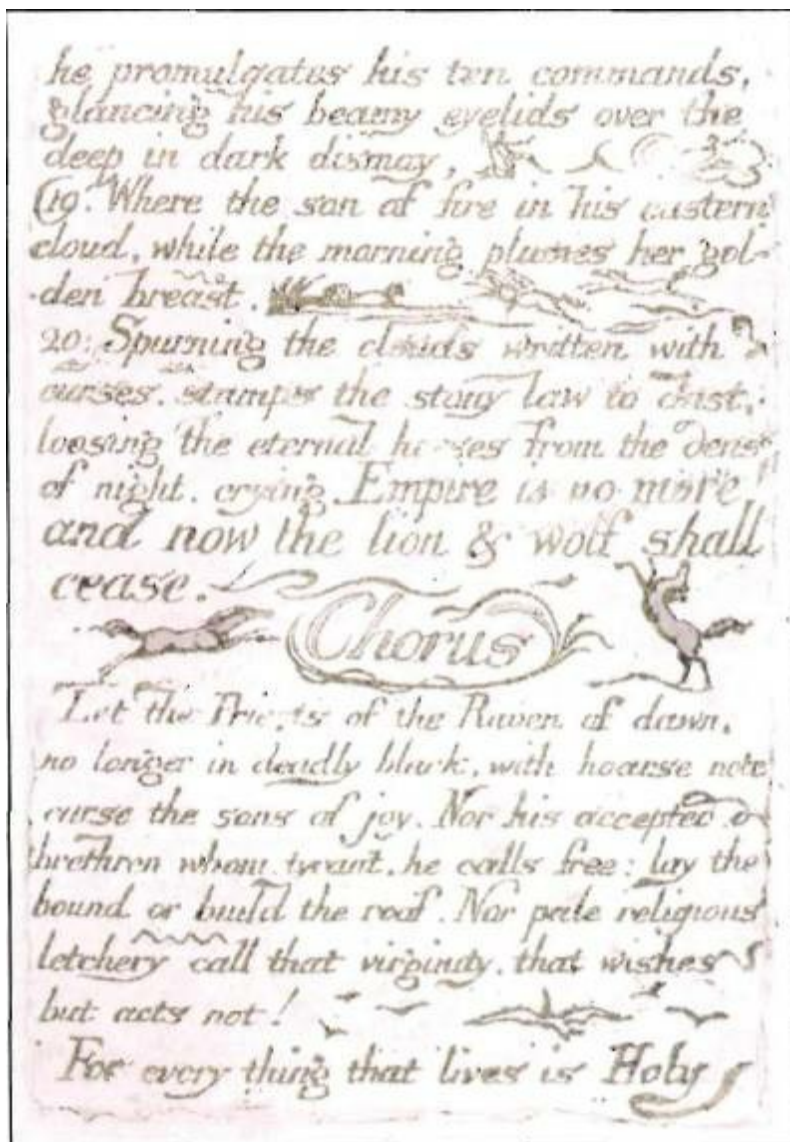 he promulgates his ten commands,
glancing his beamy eyelids over the
deep in dark dismay,
19. Where the son of fire in his eastern
cloud, while the morning plumes her gol-
-den breast.
20. Spurning the clouds written with
curses, stamps the stony law to dust,
loosing the eternal horses from the dens
of night, crying Empire is no more!
and now the lion & wolf shall
cease.
Chorus
Let the Priests of the Raven of dawn,
no longer in deadly black, with hoarse note
curse the sons of joy. Nor his accepted
brethren whom, tyrant, he calls free: lay the
bound or build the roof. Nor pale religious
letchery call that virginity, that wishes
but acts not!
For every thing that lives is Holy